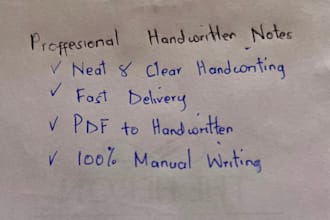 Proffesional Handwritten Notes
✓ Neat & Clear Handwriting
✓ Fast Delivery
✓ PDF to Handwritten
✓ 100% Manual Writing